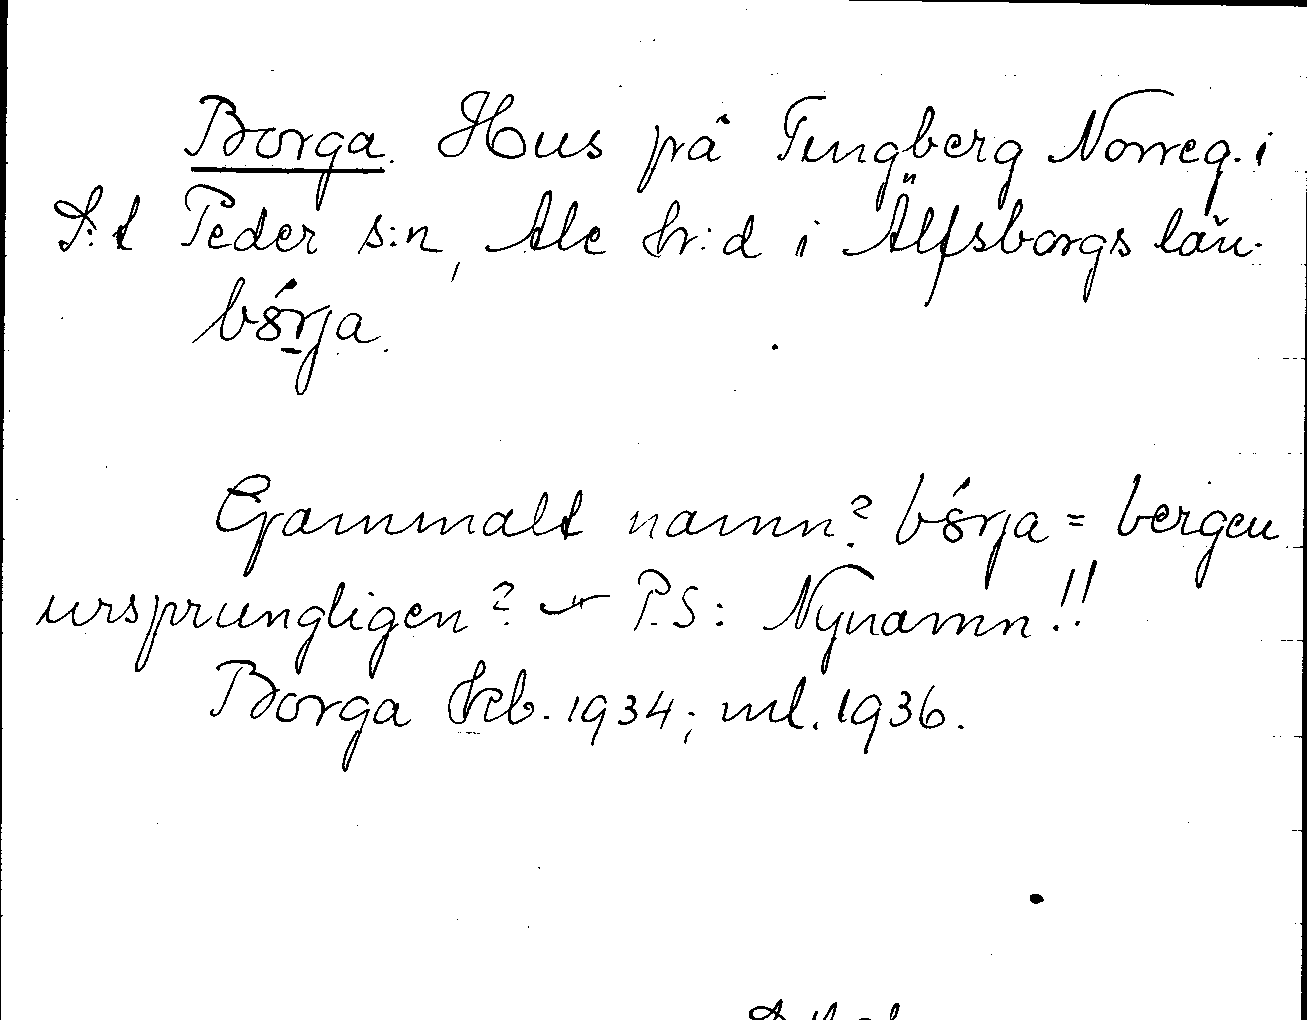 Borga. Hus på Tingberg Norreg. i
S:t Peder s:n, Ale hr:d i Älfsborgs län.
börja.
Gammalt namn? börja = bergen
ursprungligen? — P.S: Nynamn!!
Borga Jrb. 1934; ml. 1936.